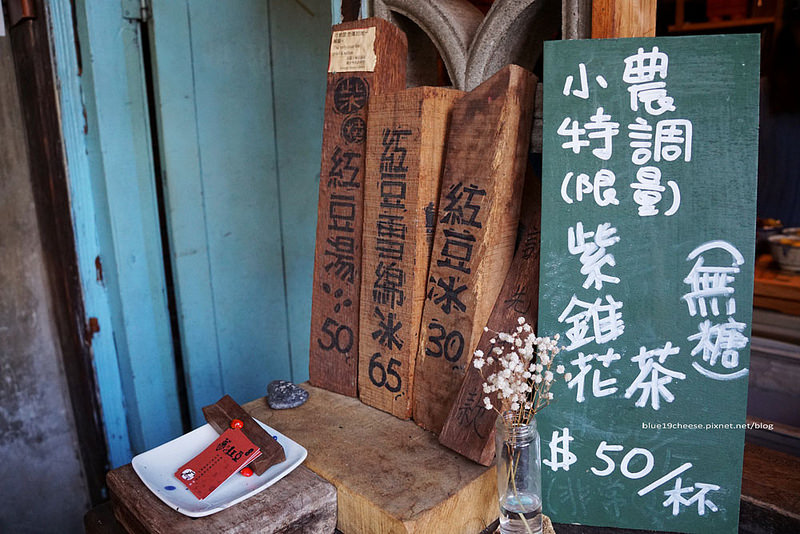 柴燒紅豆湯 50
紅豆雪綿冰 65
紅豆冰 30
小農
特調
(限量)
紫錐花茶
(無糖)
$50/杯
blue19cheese.pixnet.net/blog